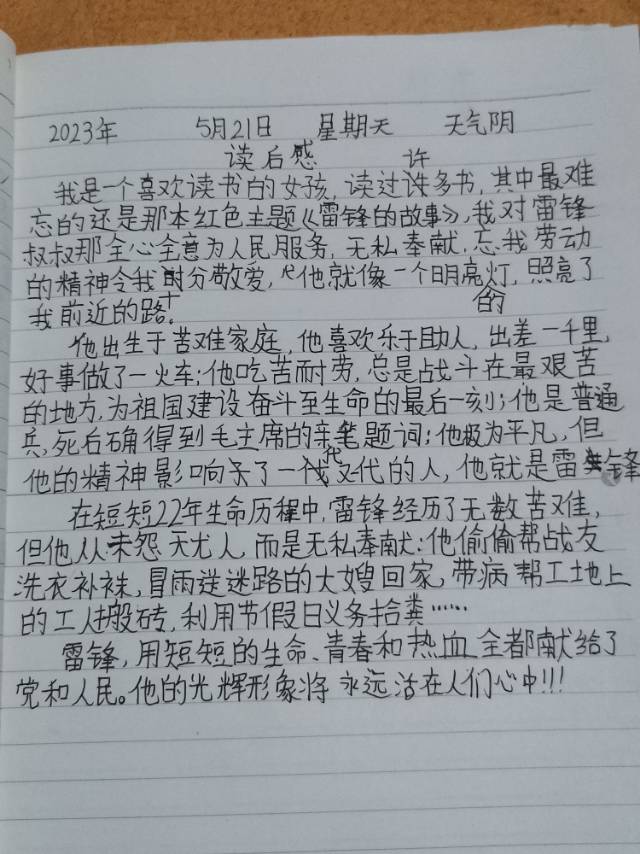 2023年 5月21日 星期天 天气阴
读后感 许
我是一个喜欢读书的女孩，读过许多书，其中最难
忘的还是那本红色主题《雷锋的故事》，我对雷锋
叔叔那全心全意为人民服务，无私奉献，忘我劳动
的精神令我十分敬爱，他就像一个明亮灯，照亮了
我前近的路。
他出生于苦难家庭，他喜欢乐于助人，出差一千里，
好事做了一火车；他吃苦而耐劳，总是战斗在最艰苦
的地方，为祖国建设奋斗至生命的最后一刻；他是普通
兵，死后确得到毛主席的亲笔题词；他极为平凡，但
他的精神影响了一代又代的人，他就是雷锋
在短短22年生命历程中，雷锋经历了无数苦难，
但他从未怨天尤人，而是无私奉献：他偷偷帮战友
洗衣补袜，冒雨送迷路的大嫂回家，带病帮工地上
的工人搬砖，利用节假日义务拾粪……
雷锋，用短短的生命、青春和热血全都献给了
党和人民。他的光辉形象将永远活在人们心中！！！